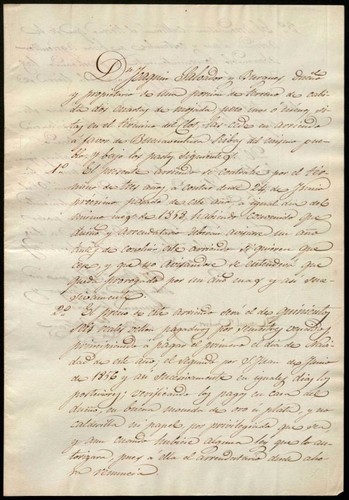 Dn. Joaquin Salvador y Burgues dueño
y propietario de una porcion de terreno de cabi
da dos cuartas de mojada poco mas ó menos, si
tas en el termino del Clot, las cede en arriendo
á favor de Buenaventura Ribas del mismo pue
blo y bajo los pactos siguientes.
1º El presente arriendo se contrata por el tér
mino de tres años, á contar desde 24 de Junio
procsimo pasado de este año á igual dia del
mismo mes de 1858, habiendo convenido que
dueño y arrendatario deberan avisarse un año
antes de concluir este arriendo si quieren que
cese, y que no avisandose se entenderá que
queda prorogado por un año mas y asi su
cesivamente.
2º El precio de este arriendo será el de quinientos
reales vellon pagaderos por semestres vencidos
principiando á pagar el primero el dia de Navi
dad de este año, el segundo por San Juan de Junio
de 1856 y asi sucesivamente en iguales dias los
posteriores; verificando los pagos en casa del
dueño, en buena moneda de oro ó plata, y no
calderilla ni papel por privilegiado que sea
y aun cuando hubiere alguna ley que lo au
torizare, pues á ella el arrendatario desde aho
ra renuncia